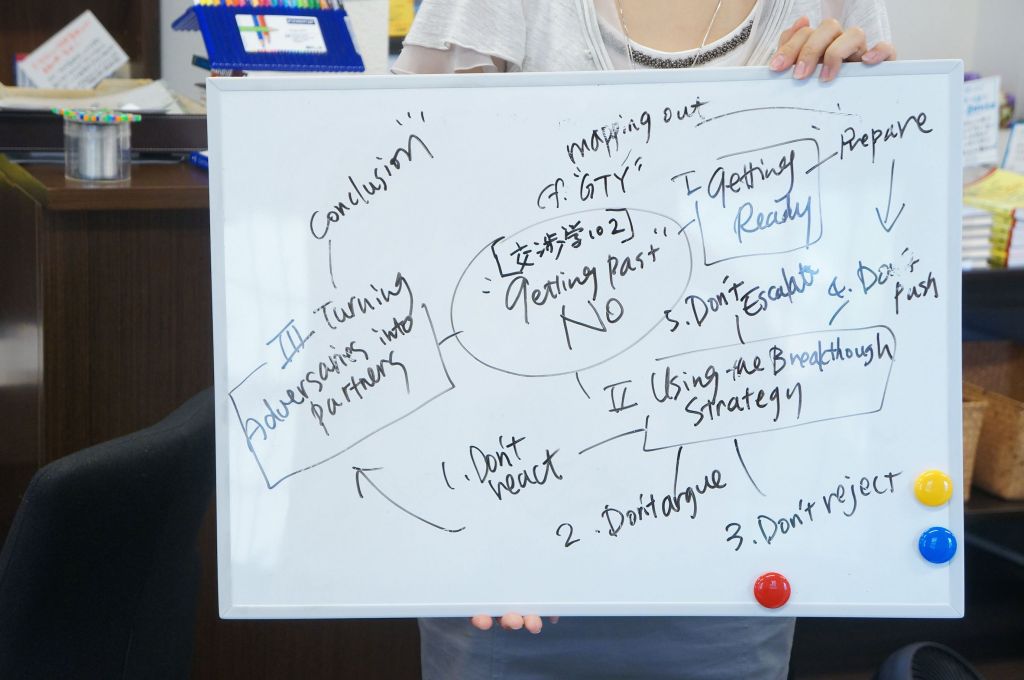 mapping out
cf. "GTY"
[交渉学102]
"Getting past"
NO
I Getting
Ready
Prepare
II Using the Breakthough
Strategy
1. Don't
react
2. Don't argue
3. Don't reject
4. Don't
Push
5. Don't
Escalate
III Turning
Adversaries into
partners
Conclusion